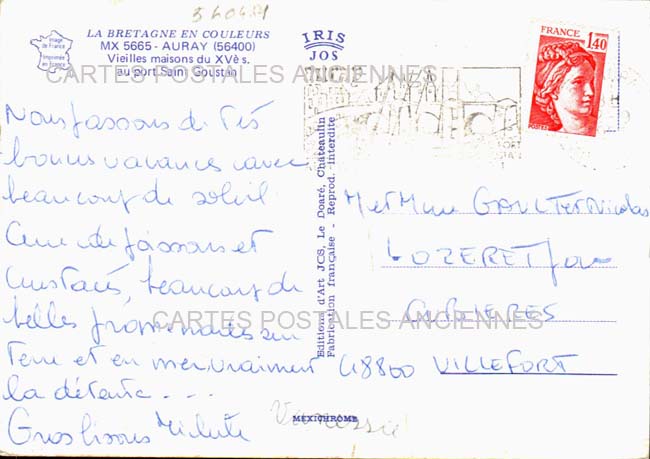 340481
LA BRETAGNE EN COULEURS
MX 5665 - AURAY (56400)
Vieilles maisons du XVè s.
au port Saint Goustan
Image de France
Imprimée en France
IRIS
JOS
FRANCE
1,40
POSTES
CARTES POSTALES ANCIENNES
Nous passons de très
bonnes vacances avec
beaucoup de soleil
Cure de poissons et
Crustacés, beaucoup de
belles promenades sur
Terre et en mer, vraiment
la détente - - -
Gros bisous
Vanessa
Editions d'Art JOS, Le Doaré, Châteaulin
Fabrication française - Reprod. interdite
MEXICHROME
Mr et Mme GAULTER Nicolas
LOZERET par
CUBIERES
48800 VILLEFORT
CARTES POSTALES ANCIENNES